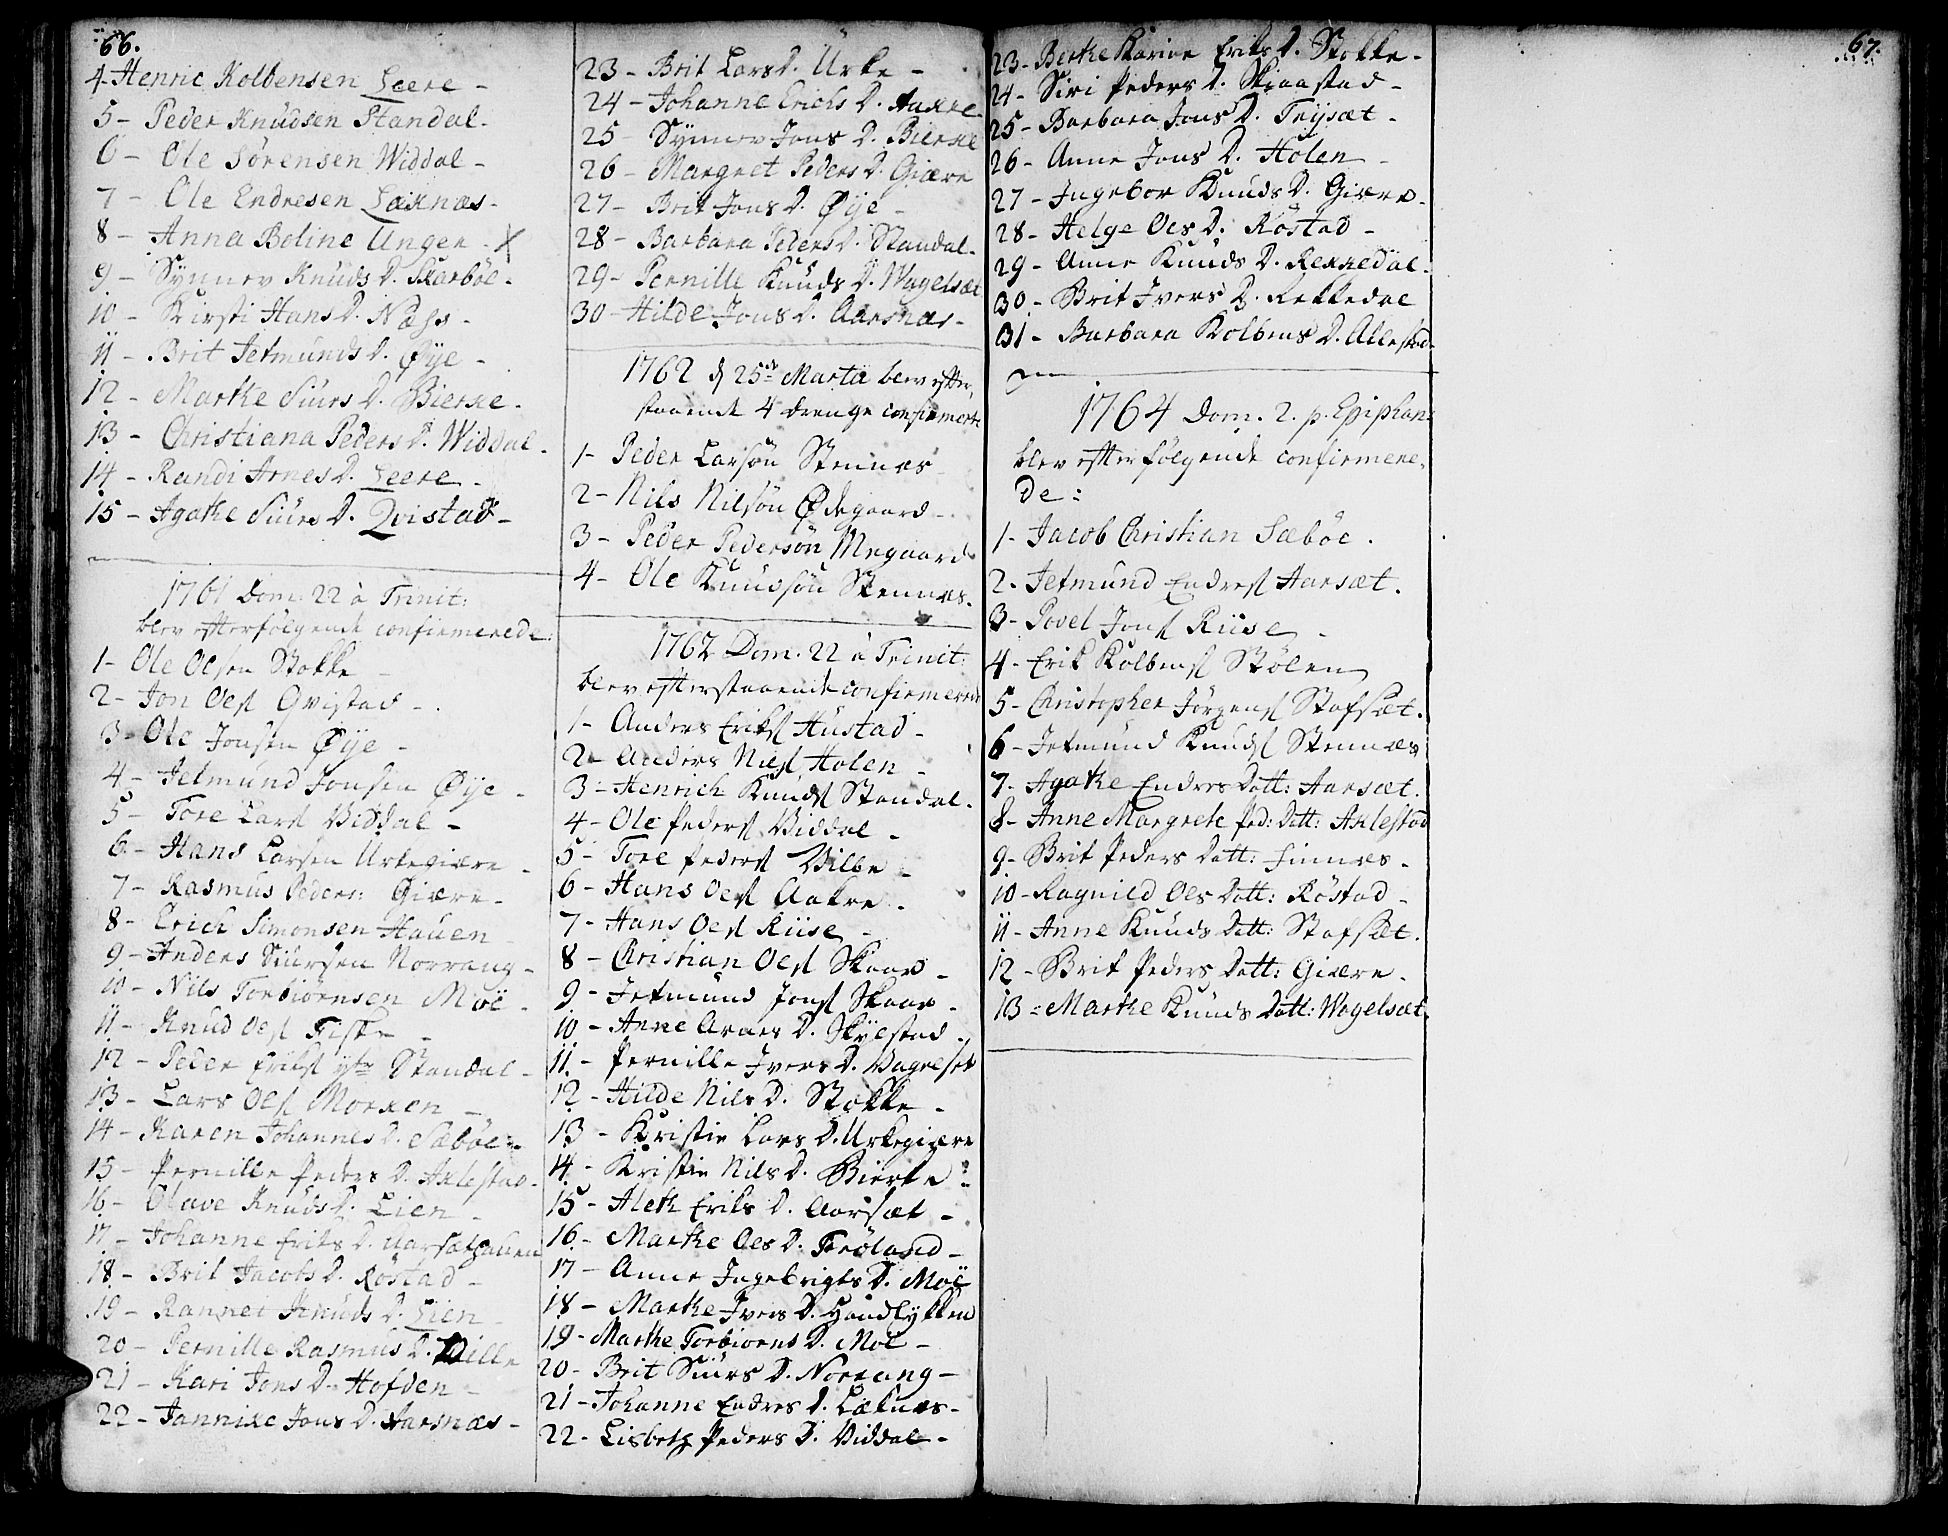 66.
4- Henric Kolbensen Leere -
5 - Peder Knudsen Standal -
6 - Ole Sørensen Widdal -
7 - Ole Endresen Læknæs -
8 - Anna Boline Unger - X
9 - Synnev Knuds D. Skarbøe -
10 - Kirsti Hans D. Næss -
11 - Brit Jetmunds D. Øÿe -
12 - Marthe Siurs D. Bierke -
13 - Christiana Peders D. Widdal -
14 - Randi Arnes D. Leere -
15 - Agathe Siurs D. Qvistad -
1761 Dom: 22 à Trinit:
blev efterfølgende confirmerede:
1- Ole Olsen Stokke -
2- Jon Oles Qvistad -
3- Ole Jonsen Øÿe -
4- Jetmund Jonsen Øÿe -
5 - Tore Lars Viddal -
6 - Hans Larsen Urkegiære -
7 - Rasmus Peders: Giære -
8 - Erich Simonsen Hauen
9 - Anders Siursen Norrang -
10 - Nils Torbiørnsen Moë -
11 - Knud Oles Fiske -
12 - Peder Eriks ytr Standal -
13 - Lars Oles Morken -
14 - Karen Johannes D. Sæbøe -
15 - Pernille Peders D. Aklestad -
16 - Olave Knuds D. Lien -
17 - Johanne Eriks D. Aarsæthauen
18 - Brit Jacobs D. Røstad -
19 - Rannei Knuds D. Lien -
20 - Pernille Rasmus D. Wille
21 - Kari Jons D. Hofden -
22 - Jannike Jons D. Aarsnæs -
23 - Brit Lars D. Urke -
24 - Johanne Erichs D. Aakre
25 - Synnev Jons D. Bierke
26 - Margret Peders D. Giære
27 - Brit Jons D. Øÿe -
28 - Barbara Peders D. Standal -
29 - Pernille Knuds D. Wagelsæt
30 - Hilde Jons D. Aarsnæs -
1762 d 25de Martii blev efter
staaende 4 drenge confirmerte
1- Peder Larsøn Stennæs
2- Nils Nilsøn Ødegaard -
3 - Peder Pedersøn Megaard
4 - Ole Knudsøn Stennæs.
1762 Dom. 22 à Trinit:
blev efterstaaende confirmerede
1- Anders Eriks Hustad -
2- Anders Niels Holen -
3 - Henrich Knuds Standal -
4 - Ole Peders Viddal -
5 - Tore Peders Vilbe -
6 - Hans Oles Aakre -
7 - Hans Oles Riise -
8 - Christian Oles Skaar -
9 - Jetmund Jons Skaar -
10 - Anne Arnes D. Skÿestad -
11 - Pernille Ivers D. Vagelset
12 - Hilde Nils D. Stokke -
13 - Kirstie Lars D. Urkegiære
14 - Kristie Nils D. Bierke -
15 - Aleth Eriks D. Aarsæt -
16 - Marthe Oles D. Frøland -
17 - Anne Ingebrigts D. Moë
18 - Marthe Ivers D. Haandlykken
19 - Marthe Torbiørns D. Moë -
20 - Brit Siurs D. Norrang -
21 - Johanne Endres D. Læknæs -
22 - Lisbeth Peders D. Viddal -
67.
23 - Berthe Karine Eriks D. Stokke -
24 - Siri Peders D. Skiaastad -
25 - Barbara Jons D. Trysæt -
26 - Anne Jons D. Holen -
27 - Ingebor Knuds D. Giære -
28 - Helge Oles D. Røstad -
29 - Anne Knuds D. Rekkedal -
30 - Brit Ivers D. Rekkedal
31 - Barbara Kolbens D. Allestad -
1764 Dom. 2. p. Epiphan:
blev efterfølgende confirmere-
de:
1- Jacob Christian Sæbøe .
2- Jetmund Endres Aarsæt.
3- Povel Jons Riise -
4 - Erik Kolbens Stølen
5 - Christopher Jørgens Stafsæt.
6 - Jetmund Knuds Stennæs
7 - Agathe Endres Datt: Aarsæt.
8 - Anne Margrete Ped: Datt: Aklestad
9 - Brit Peders Datt: Finnæs -
10 - Ragnild Oles Datt: Røstad -
11 - Anne Knuds Datt: Stafsæt.
12 - Brit Peders Datt: Giære -
13 - Marthe Knuds Datt: Wagelsæt.